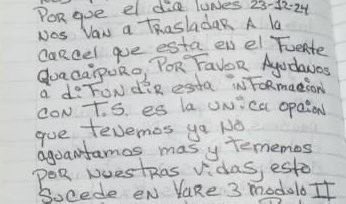 POR que el día lUNes 23-12-24
NOS VAN a TRasladaR A la
CaRcel que esta en el FueRte
GuacaipuRO, PoR FavoR AyudaNos
a diFUNdiR esta iNFoRmacioN
CoN T.S. es la UNica opcioN
que teNemos ya NO
aguaNtamos mas y tememos
PoR NuestRas vidas, esto
Sucede eN YaRe 3 modulo II